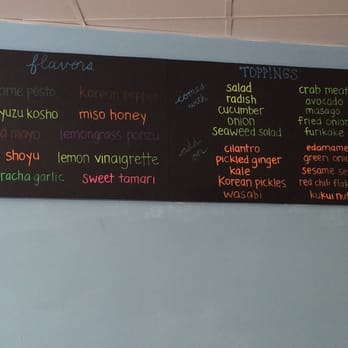 flavors
ame pesto Korean pepper
yuzu kosho miso honey
a mayo lemongrass ponzu
shoyu lemon vinaigrette
racha garlic sweet tamari
TOPPINGS
comes with
salad crab meat
radish avocado
cucumber masago
onion fried onion
seaweed salad furikake
add on
cilantro edamame
pickled ginger green onion
kale sesame se
Korean pickles red chili flak
wasabi kukui nut